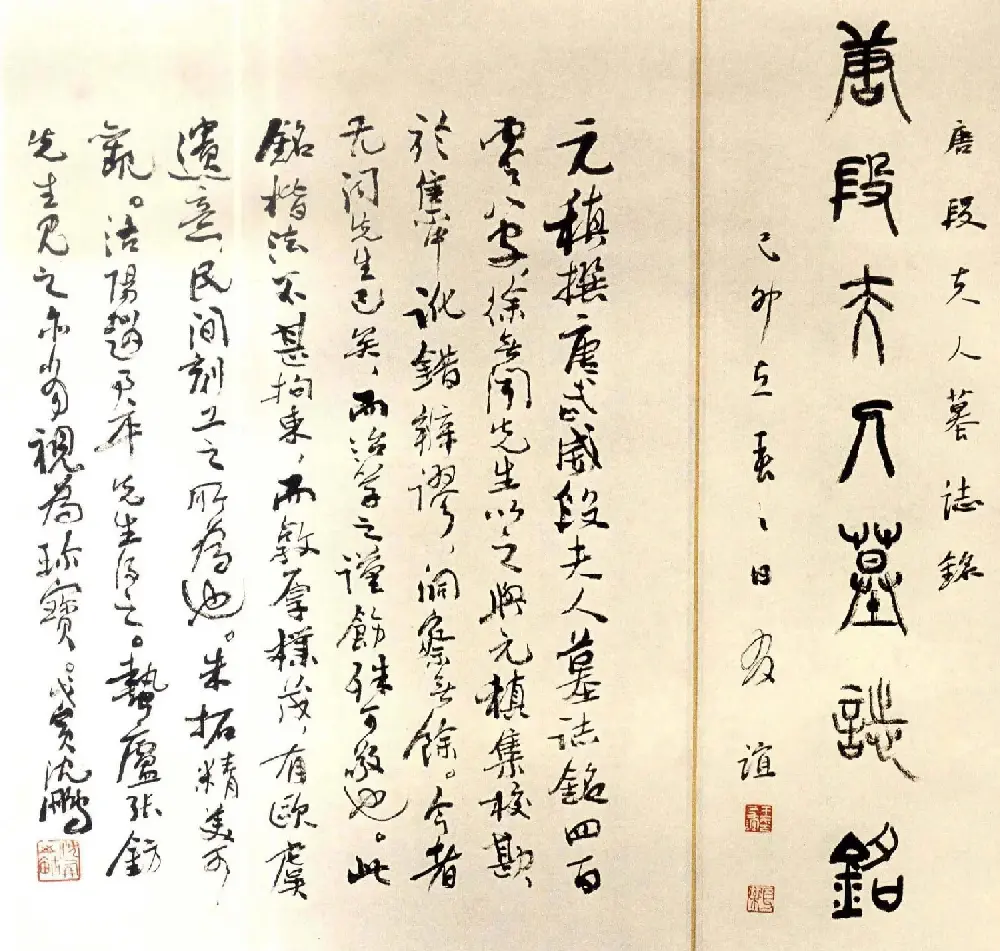 唐段夫人墓誌銘
唐段夫人墓誌銘
己卯立春之日 友誼
元稹撰唐武威段夫人墓誌銘四百
零八字,徐無聞先生以之與元稹集校勘,
於集中訛錯辯謬,洞察無餘。今者
无聞先生已矣,而治學之謹飭殊可敬也。此
銘楷法不甚拘束,而敦厚樸茂,有歐虞
遺意,民間刻工之所為也。朱拓精美可
觀。洛陽趙君平先生得之。蟄廬張鈁
先生見之亦當視為珍寶。戊寅沈鵬